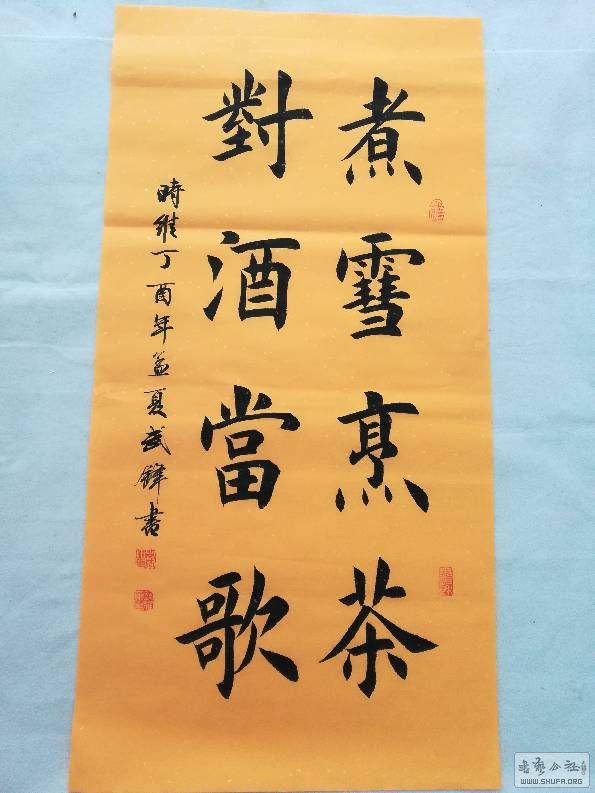 煮雪烹茶
對酒當歌
時維丁酉年孟夏武鋒書
WWW.SHUFA.ORG